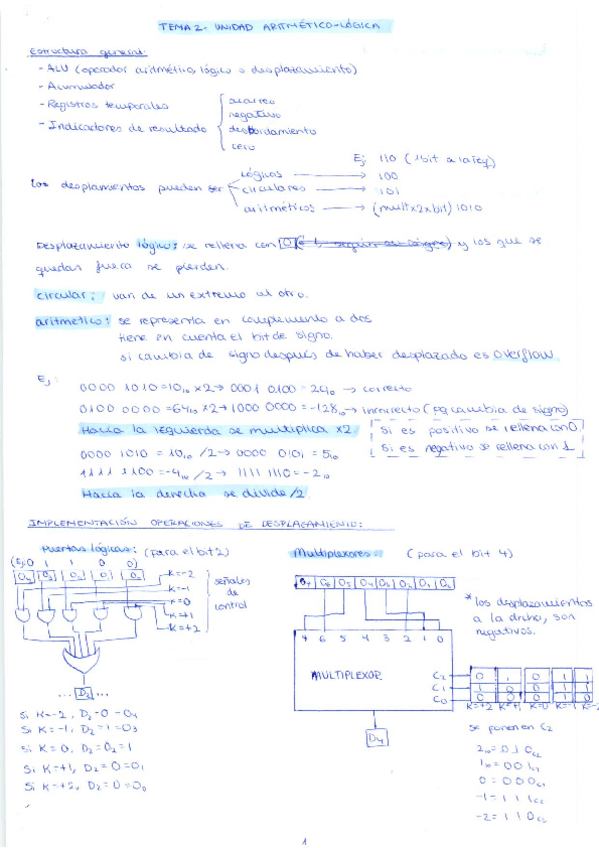 TEMA 2- UNIDAD ARITMÉTICO-LÓGICA
Estructura general:
- ALU (operador aritmético lógico o desplazamiento)
- Acumulador
- Registros temporales
- Indicadores de resultado
acarreo
negativo
desbordamiento
cero
Ej 110 (1bit a la izq)
Los desplamientos pueden ser
lógicos → 100
circulares → 101
aritméticos → (mult x2 x bit) 1010
Desplazamiento lógico: se rellena con 0 y los que se
quedan fuera se pierden.
circular: van de un extremo al otro.
aritmetico: se representa en complemento a dos
tiene en cuenta el bit de signo.
si cambia de signo después de haber desplazado es overflow.
Ej:
0000 1010 = 10₁₀ x2 → 0001 0100 = 24₁₀ → correcto
0100 0000 = 64₁₀ x2 → 1000 0000 = -128₁₀ → incorrecto (pq cambia de signo)
Hacia la izquierda se multiplica x2
Si es positivo se rellena con 0
Si es negativo se rellena con 1
0000 1010 = 10₁₀ /2 → 0000 0101 = 5₁₀
1111 1100 = -4₁₀ /2 → 1111 1110 = -2₁₀
Hacia la derecha se divide /2
IMPLEMENTACIÓN OPERACIONES DE DESPLAZAMIENTO:
Puertas lógicas: (para el bit 2)
(Ej: 0 1 1 0 0)
K=-2
K=-1
K=0
K=+1
K=+2
señales
de
control
D₂
Si K=-2, D₂=0=O₄
Si K=-1, D₂=1=O₃
Si K=0, D₂=O₂=1
Si K=+1, D₂=0=O₁
Si K=+2, D₂=0=O₀
Multiplexores: (para el bit 4)
O₇ O₆ O₅ O₄ O₃ O₂ O₁ O₀
7 6 5 4 3 2 1 0
MULTIPLEXOR
C₂ 0 0 0 1 1
C₁ 1 0 0 1 1
C₀ 0 1 0 1 0
K=+2 K=+1 K=0 K=-1 K=-2
D₄
* los desplazamientos
a la drcha, son
negativos.
se ponen en C2
2₁₀ = 010C2
1₁₀ = 001C2
0 = 000C2
-1 = 111C2
-2 = 110C2
1